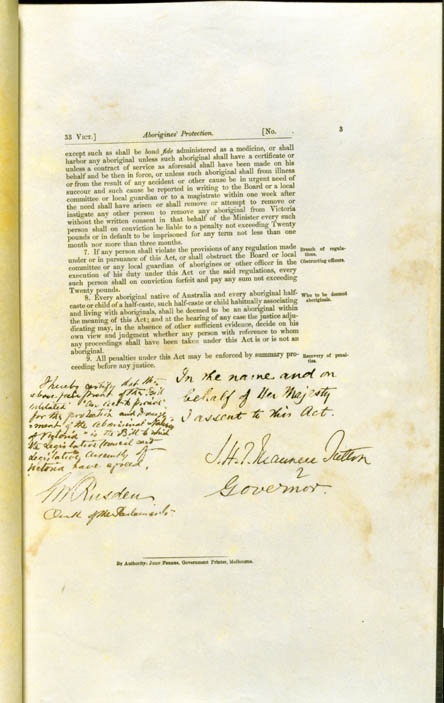 33 VICT.] Aborigines' Protection. [No. 3
except such as shall be bonâ fide administered as a medicine, or shall
harbor any aboriginal unless such aboriginal shall have a certificate or
unless a contract of service as aforesaid shall have been made on his
behalf and be then in force, or unless such aboriginal shall from illness
or from the result of any accident or other cause be in urgent need of
succour and such cause be reported in writing to the Board or a local
committee or local guardian or to a magistrate within one week after
the need shall have arisen or shall remove or attempt to remove or
instigate any other person to remove any aboriginal from Victoria
without the written consent in that behalf of the Minister every such
person shall on conviction be liable to a penalty not exceeding Twenty
pounds or in default to be imprisoned for any term not less than one
month nor more than three months.
7. If any person shall violate the provisions of any regulation made
under or in pursuance of this Act, or shall obstruct the Board or local
committee or any local guardian of aborigines or other officer in the
execution of his duty under this Act or the said regulations, every
such person shall on conviction forfeit and pay any sum not exceeding
Twenty pounds.
Breach of regula-
tions.
Obstructing officers.
8. Every aboriginal native of Australia and every aboriginal half-
caste or child of a half-caste, such half-caste or child habitually associating
and living with aboriginals, shall be deemed to be an aboriginal within
the meaning of this Act; and at the hearing of any case the justice adju-
dicating may, in the absence of other sufficient evidence, decide on his
own view and judgment whether any person with reference to whom
any proceedings shall have been taken under this Act is or is not an
aboriginal.
Who to be deemed
aboriginals.
9. All penalties under this Act may be enforced by summary pro-
ceeding before any justice.
Recovery of penal-
ties.
I hereby certify that the
above fair print of the Bill
intituled "An Act to provide
for the protection and manage-
ment of the Aboriginal Natives
of Victoria" is the Bill to which
the Legislative Council and
Legislative Assembly of
Victoria have agreed.
Rusden
Clerk of the Parliaments
In the name and on
behalf of Her Majesty
I assent to this Act.
J.H.T. Manners Sutton
Governor.
By Authority: JOHN FERRES, Government Printer, Melbourne.